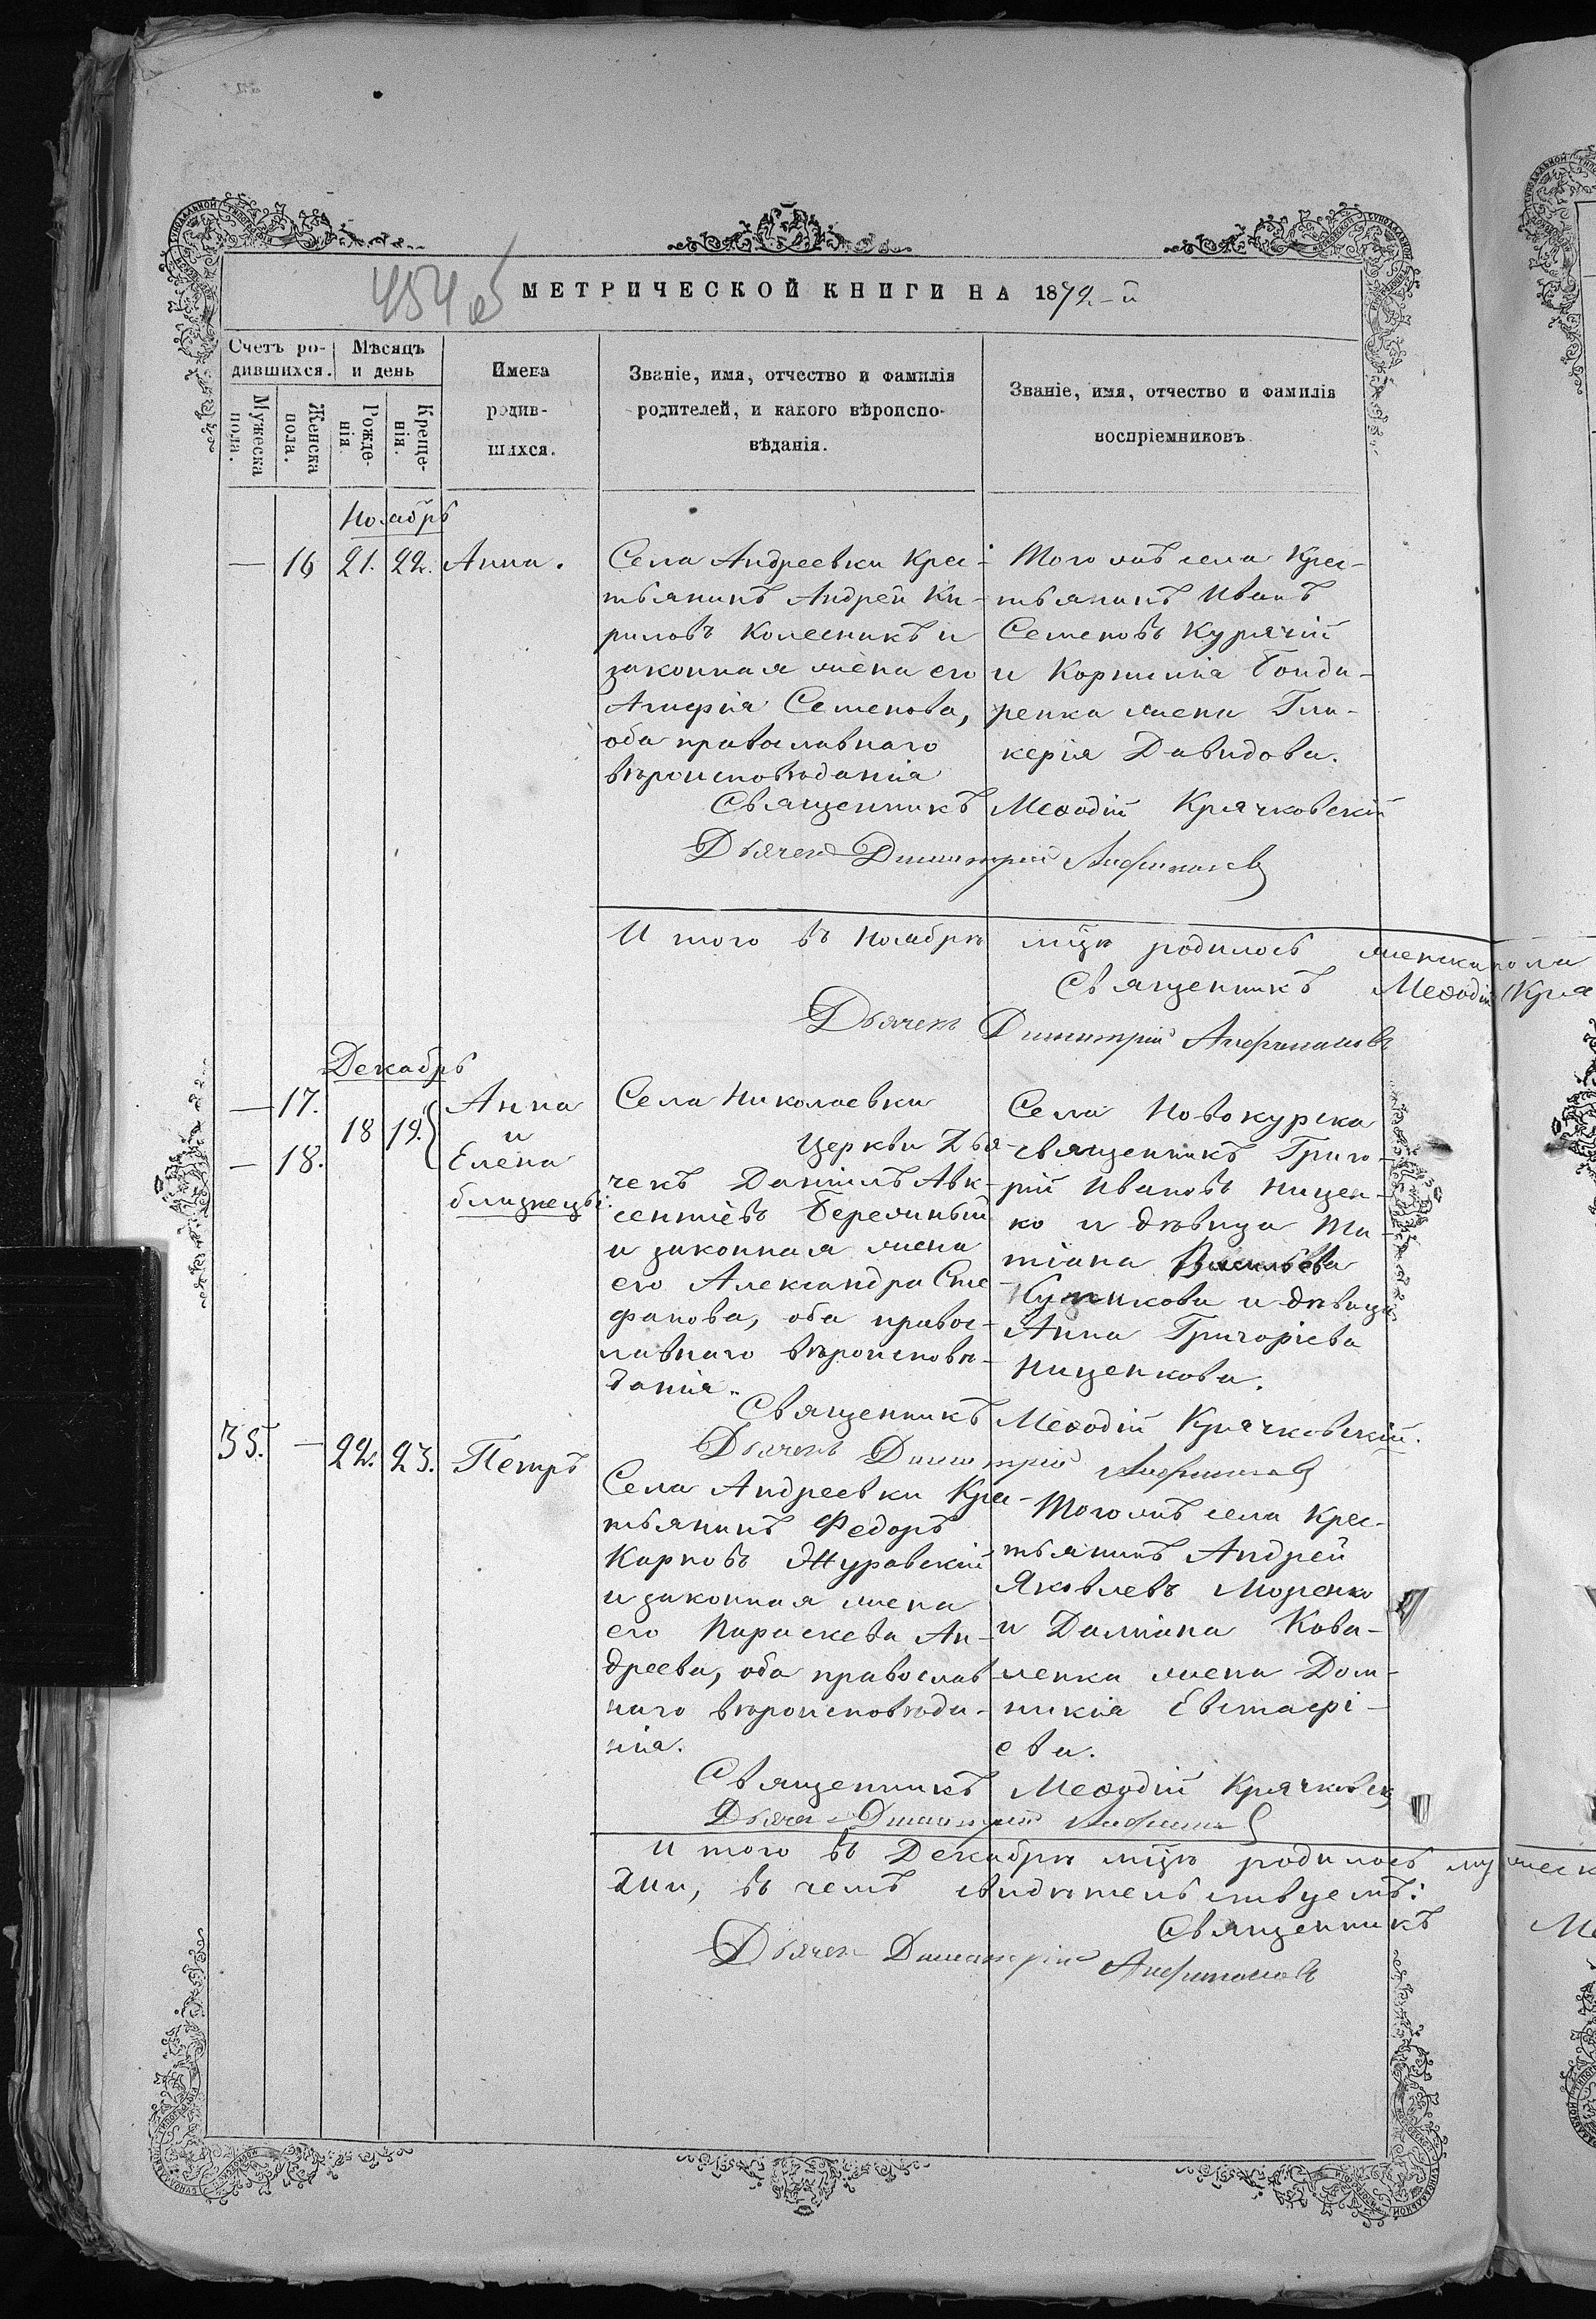 454 об
МЕТРИЧЕСКОЙ КНИГИ НА 1872-й
Счетъ ро-
дившихся.
Мѣсяцъ
и день
Имена
родив-
шихся.
Званіе, имя, отчество и фамилія
родителей, и какого вѣроиспо-
вѣданія.
Званіе, имя, отчество и фамилія
воспріемниковъ
Мужеска
пола.
Женска
пола.
Рожде-
нія.
Креще-
нія.
Ноябрь
— 16 21. 22. Анна.
Села Андреевки Крес-
тьянинъ Андрей Ки-
риловъ Колесникъ и
законная жена его
Агафія Семенова,
оба православнаго
вѣроисповѣданія
Того жъ села Крес-
тьянинъ Иванъ
Семеновъ Курячій
и Корнилія Бонда-
ренка жена Гли-
керія Давидова.
Священникъ Меѳодій Крячковскій
Дьячекъ Димитрій
И того въ Ноябрѣ мцѣ родилось женска пола
Священникъ Меѳодій Кря
Дьячекъ Димитрій
Декабрь
— 17.
— 18.
18 19.
Анна
и
Елена
близнецы.
Села Николаевки
Церкви Дья-
чекъ Даніилъ Авк-
сентіевъ Бережный
и законная жена
его Александра Сте-
фанова, оба правос-
лавнаго вѣроисповѣ-
данія.
Села Новокурска
священникъ Григо-
рій Ивановъ Ницен-
ко и дѣвица Та-
тіана Васильева
Куликова и дѣвица
Анна Григоріева
Ниценкова.
Священникъ Меѳодій Крячковскій.
Дьячекъ Димитрій
35. — 22. 23. Петръ
Села Андреевки Кре-
стьянинъ Федоръ
Карповъ Журавскій
и законная жена
его Параскева Ан-
дреева, оба православ-
наго вѣроисповѣда-
нія.
Того жъ села Крес-
тьянинъ Андрей
Яковлевъ Моренко
и Даміана Кова-
ленка жена Дом-
никія Евстафі-
ева.
Священникъ Меѳодій Крячковск
Дьячекъ Димитрій
И того въ Декабрѣ мцѣ родилось мужеск
два, въ чемъ свидѣтельствуемъ:
Священникъ Ме
Дьячекъ Димитрій